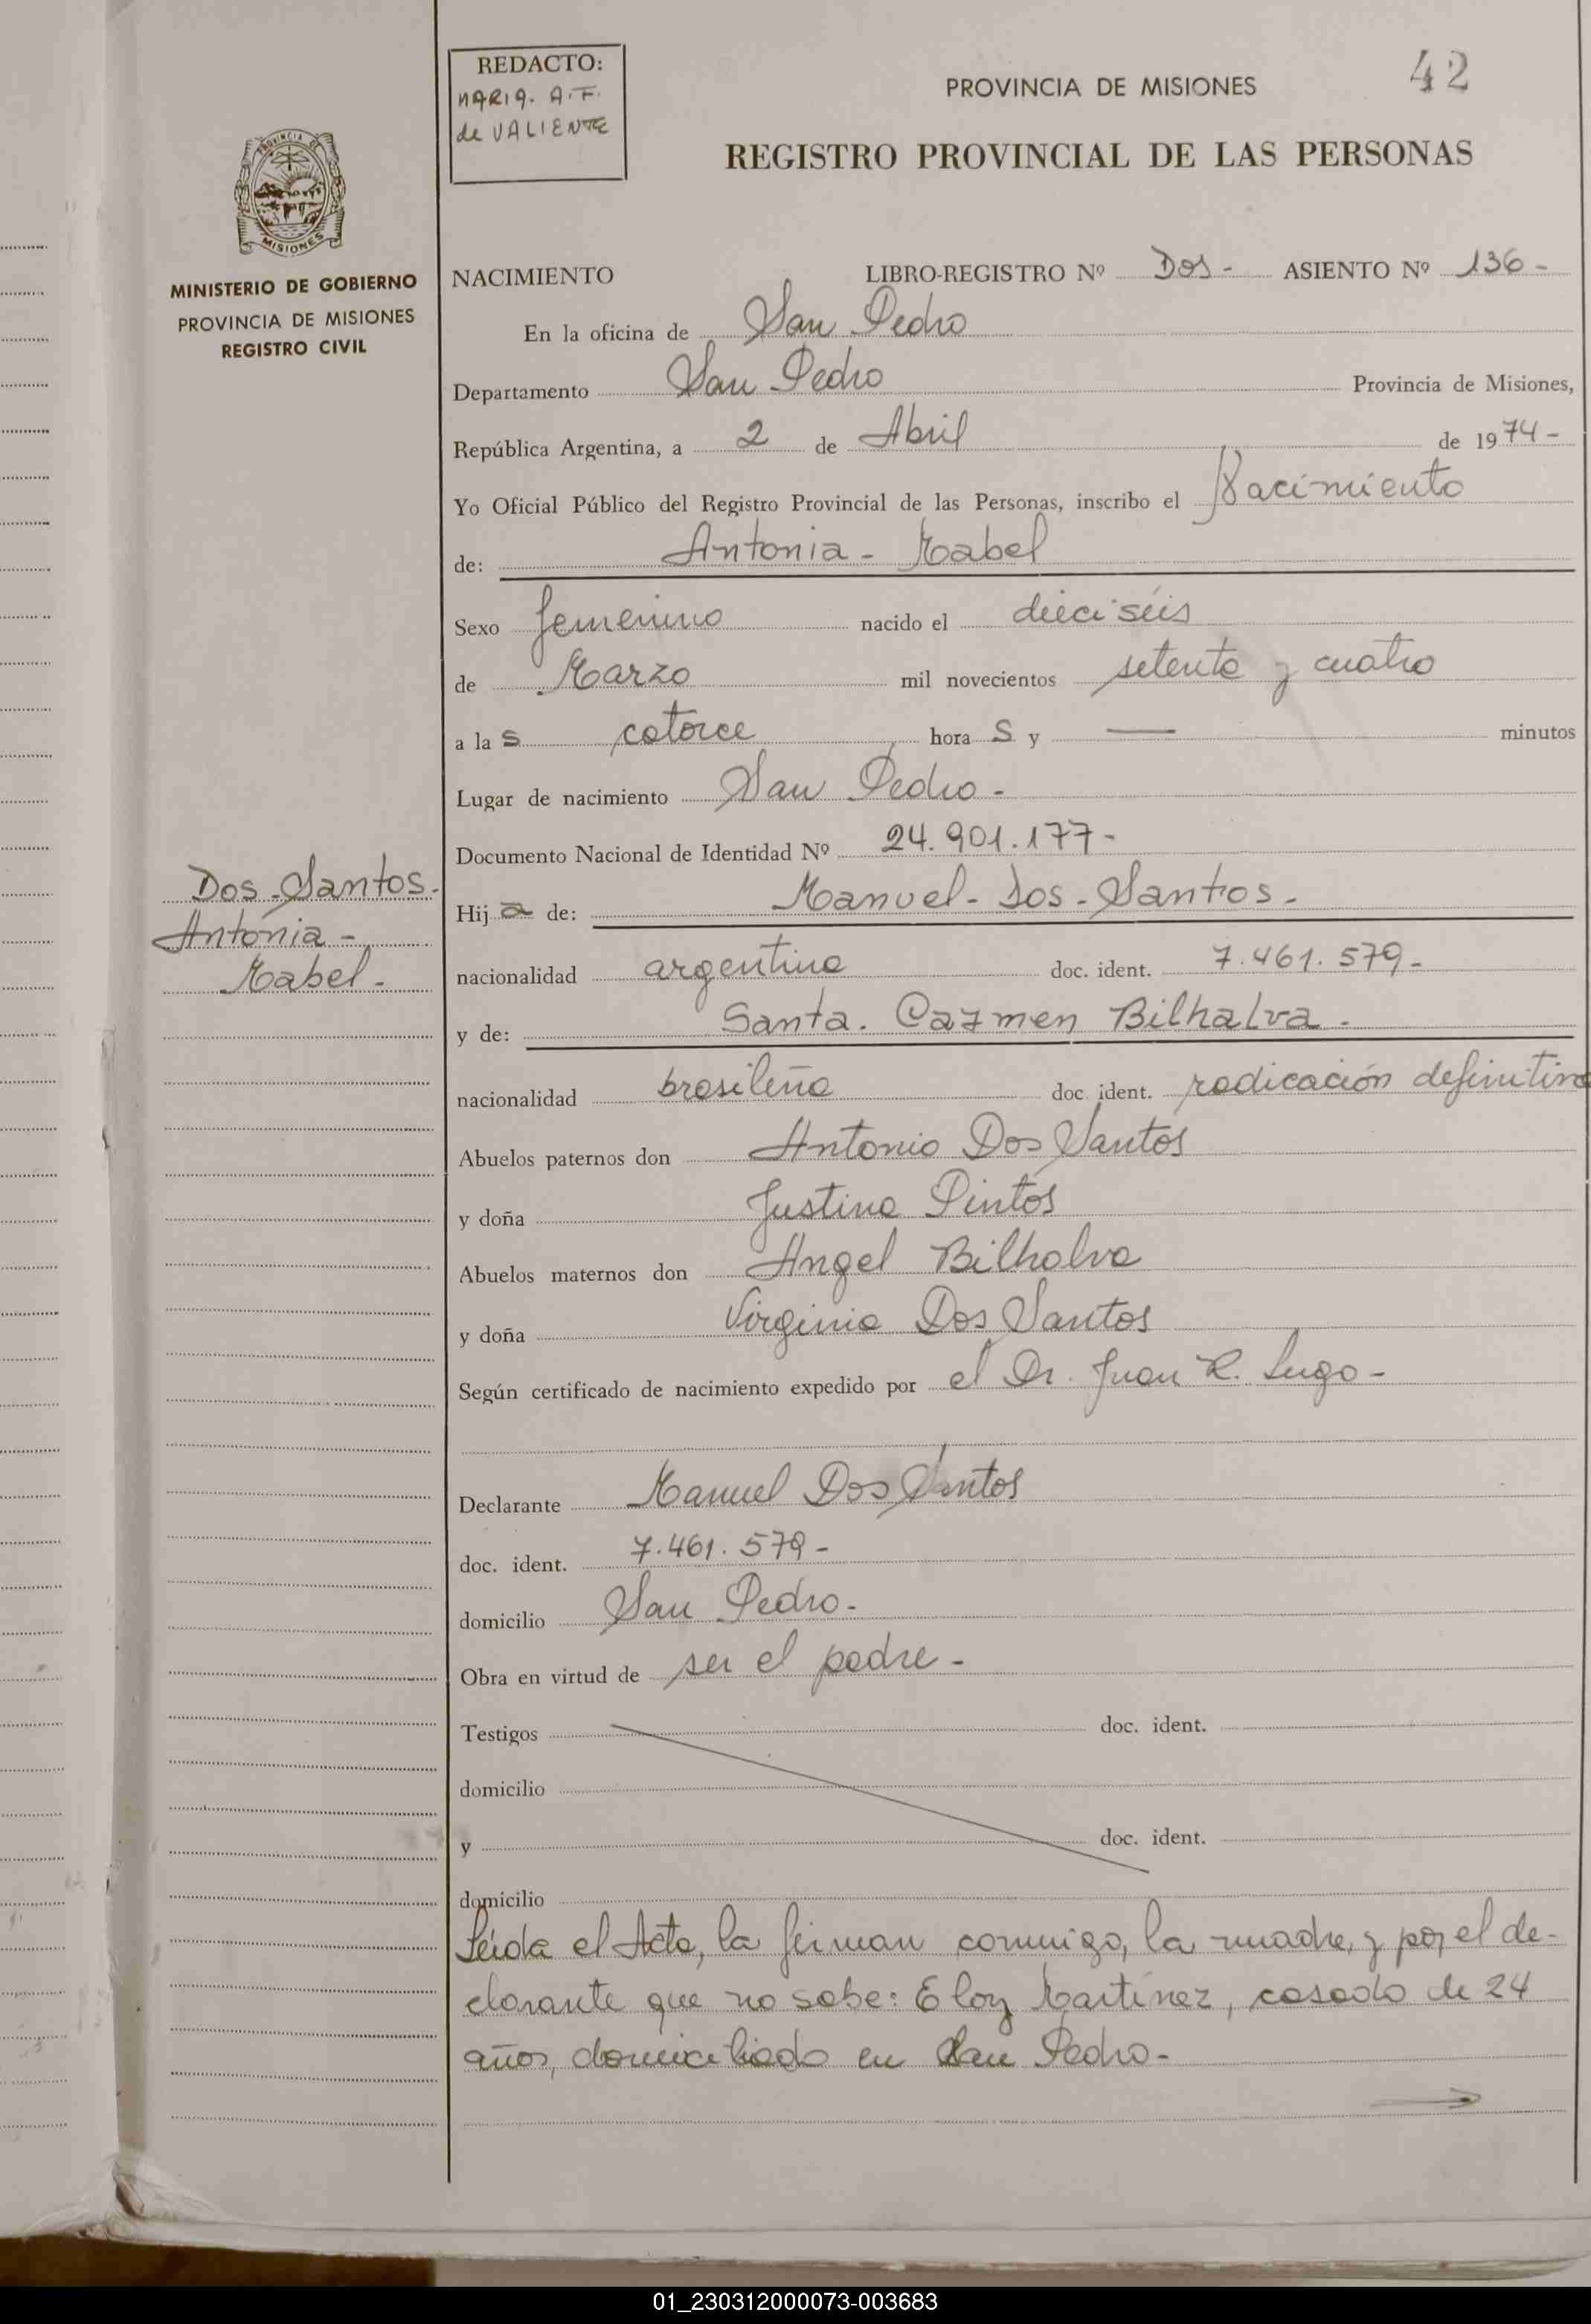 REDACTO:
MARIA. A.F.
de VALIENTE
PROVINCIA DE MISIONES
42
REGISTRO PROVINCIAL DE LAS PERSONAS
PROVINCIA DE
MISIONES
MINISTERIO DE GOBIERNO
PROVINCIA DE MISIONES
REGISTRO CIVIL
NACIMIENTO LIBRO-REGISTRO Nº Dos - ASIENTO Nº 136 -
En la oficina de San Pedro
Departamento San Pedro Provincia de Misiones,
República Argentina, a 2 de Abril de 1974 -
Yo Oficial Público del Registro Provincial de las Personas, inscribo el Nacimiento
de: Antonia - Mabel
Sexo femenino nacido el dieciséis
de Marzo mil novecientos setenta y cuatro
a las catorce horas y — minutos
Lugar de nacimiento San Pedro -
Documento Nacional de Identidad Nº 24.901.177 -
Dos - Santos.
Antonia -
Mabel -
Hija de: Manuel - Dos - Santos -
nacionalidad argentina doc. ident. 7.461.579 -
y de: Santa. Carmen Bilhalva -
nacionalidad brasileña doc. ident. radicación definitiva
Abuelos paternos don Antonio Dos Santos
y doña Justina Pintos
Abuelos maternos don Angel Bilhalva
y doña Virginia Dos Santos
Según certificado de nacimiento expedido por el Dr. Juan R. Lugo -
Declarante Manuel Dos Santos
doc. ident. 7.461.579 -
domicilio San Pedro -
Obra en virtud de ser el padre -
Testigos doc. ident.
domicilio
y doc. ident.
domicilio
Leída el Acta, la firman conmigo, la madre, y por el de-
clarante que no sabe: Eloy Martinez, casado de 24
años, domiciliado en San Pedro -
01_230312000073-003683